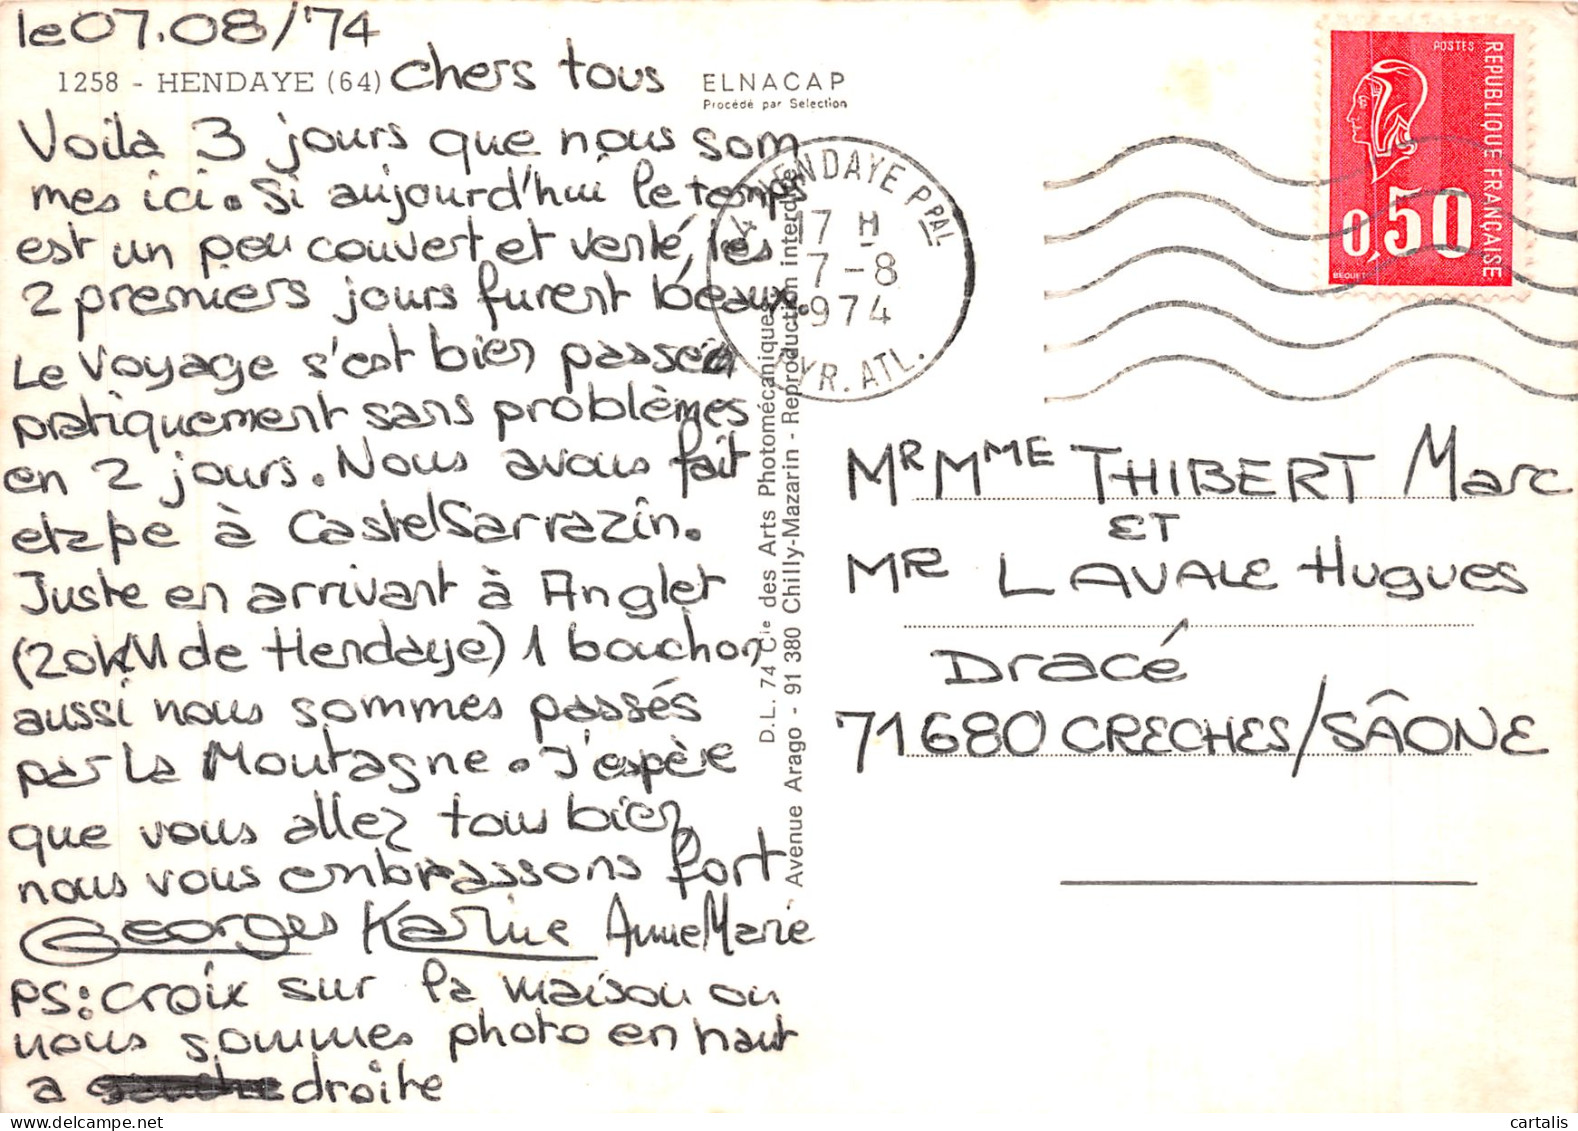 le 07.08/74
1258 - HENDAYE (64) Chers tous
ELNACAP
Procédé par Selection
Voila 3 jours que nous som
mes ici. Si aujourd'hui le temps
est un peu couvert et venté, les
2 premiers jours furent beaux.
Le voyage s'est bien passé
pratiquement sans problèmes
en 2 jours. Nous avons fait
etape à CastelSarrazin.
Juste en arrivant à Anglet
(20KM de Hendaye) 1 bouchon
aussi nous sommes passés
par La Montagne. J'espère
que vous allez tous bien
nous vous embrassons fort
Georges Karine AnneMarie
PS: croix sur la maison ou
nous sommes photo en haut
a droite
D.L. 74 Cie des Arts Photomécaniques
Avenue Arago - 91 380 Chilly-Mazarin - Reproduction interdite
HENDAYE PPAL
17 H
7-8
1974
PYR. ATL.
POSTES
REPUBLIQUE FRANÇAISE
0,50
BEQUET
MR MME THIBERT Marc
ET
MR LAVALE Hugues
Dracé
71680 CRECHES/SÂONE
cartalis